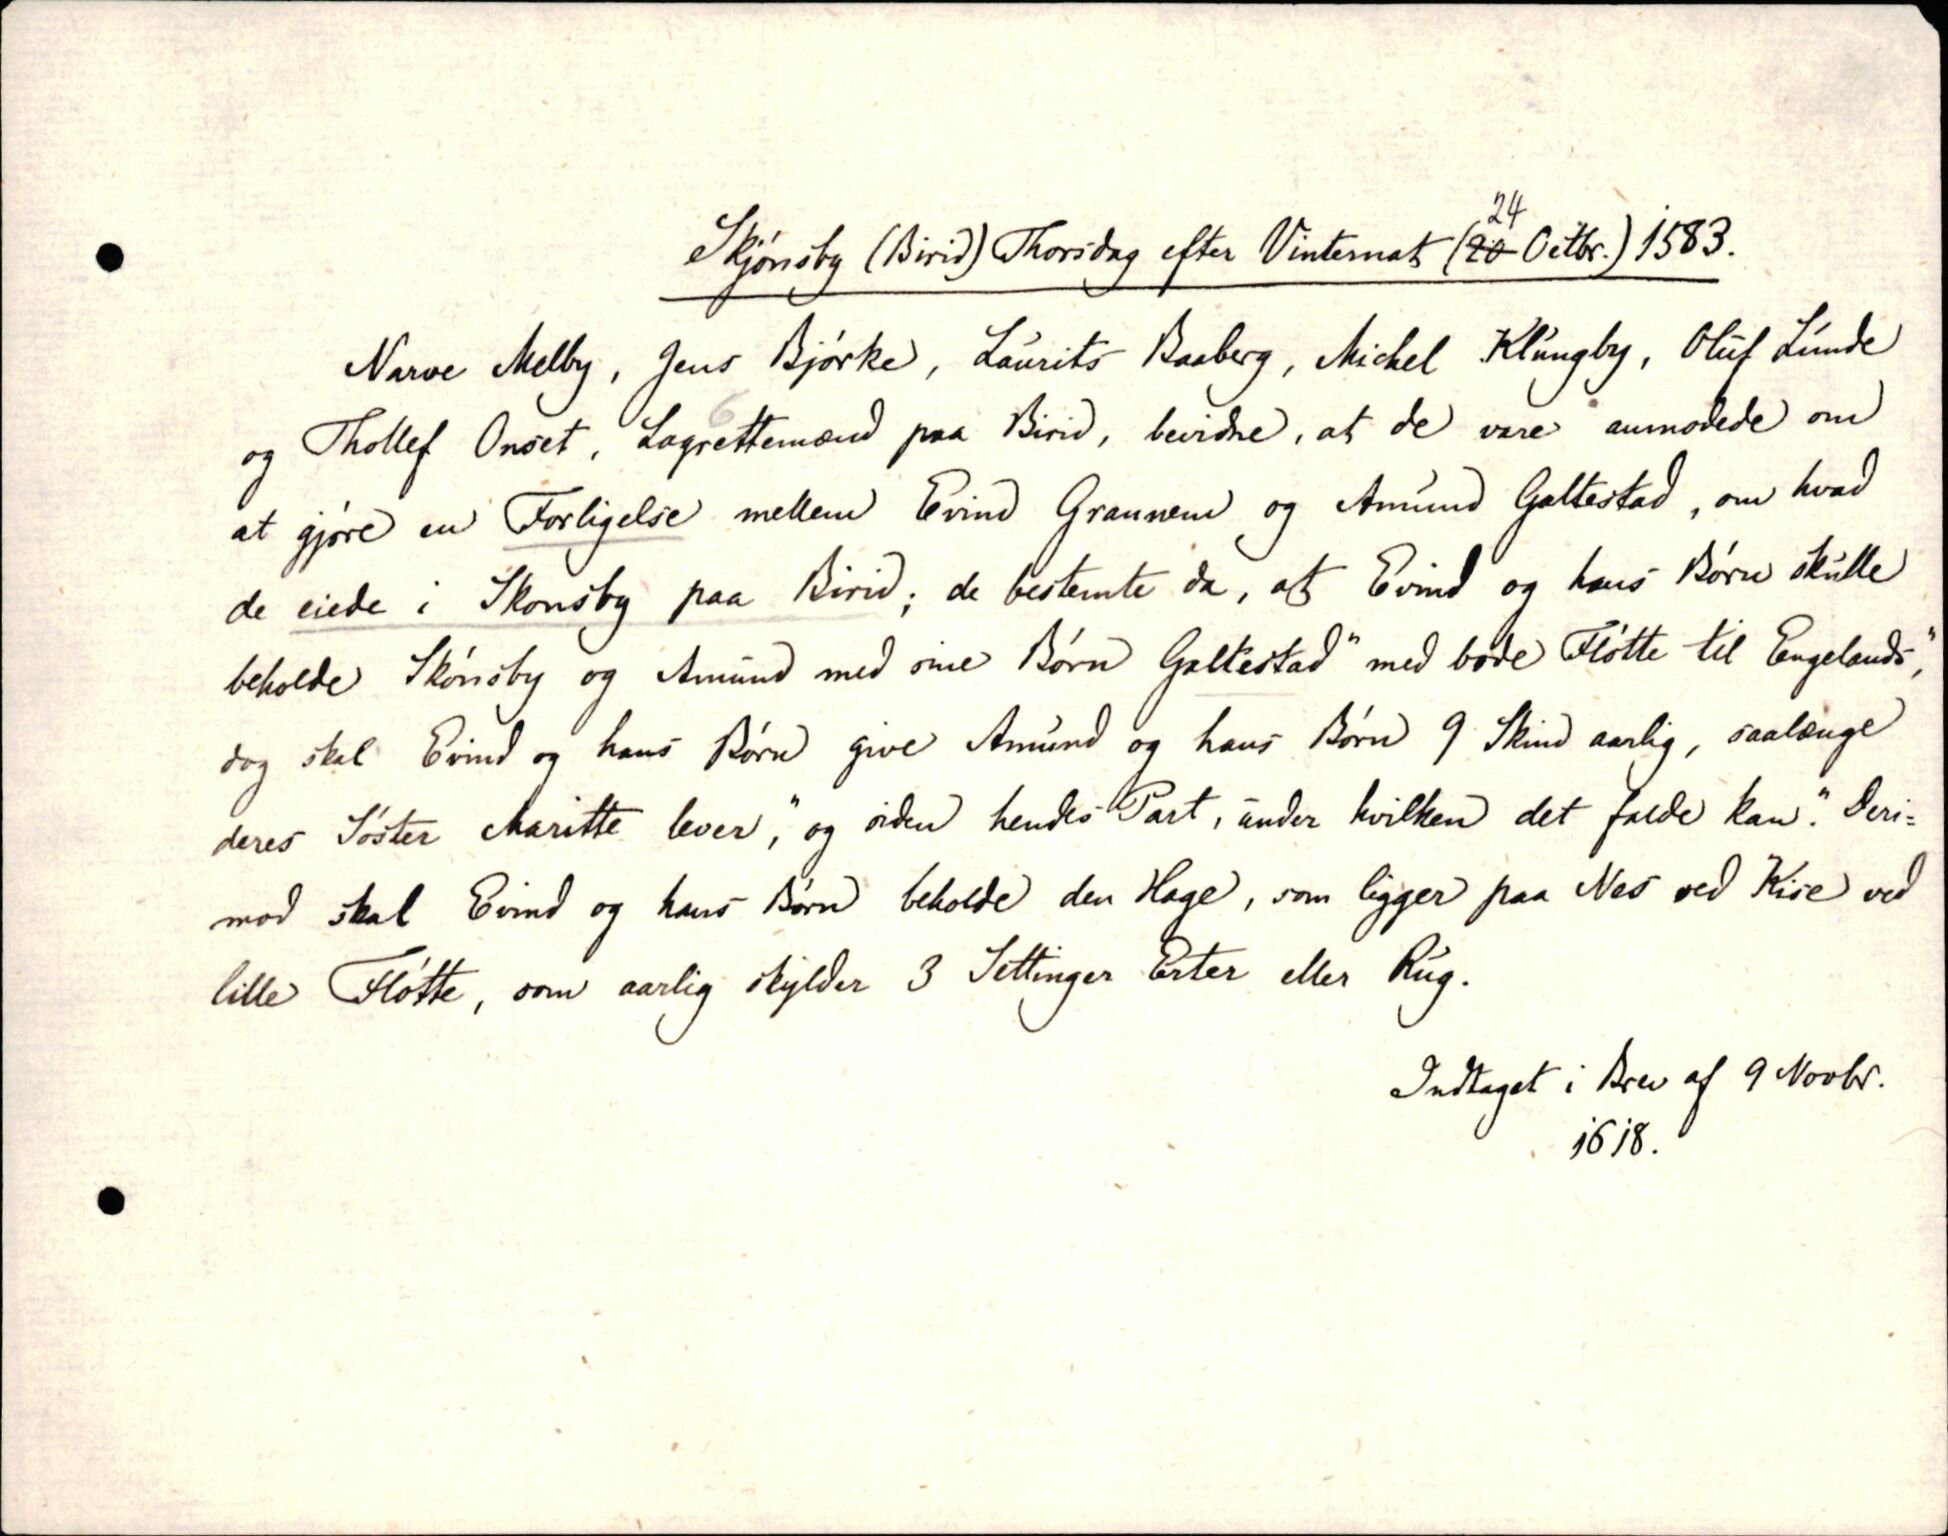 24
Skjónsby (Birid) Thorsdag efter Vinternat (20 Octbr.) 1583.
Narve Melby, Jens Bjórke, Laurits Baaberg, Michel Klungby, Oluf Lunde
og Thollef Onset, Lagrettemænd paa Birid, bevidne, at de vare anmodede om
at gjóre en Forligelse mellem Evind Grannem og Amund Galtestad, om hvad
de eiede i Skonsby paa Birid; de bestemte da, at Evind og hans Bórn skulle
beholde Skónsby og Amund med sine Bórn Galtestad "med bode Flótte til Engelands",
dog skal Evind og hans Bórn give Amund og hans Bórn 9 Skind aarlig, saalænge
deres Sóster Maritte lever, "og siden hendes Part, under hvilken det falde kan". Deri=
mod skal Evind og hans Bórn beholde den Hage, som ligger paa Nes ved Kise ved
lille Flótte, som aarlig skylder 3 Settinger Erter eller Rug.
Indtaget i Brev af 9 Novbr.
1618.